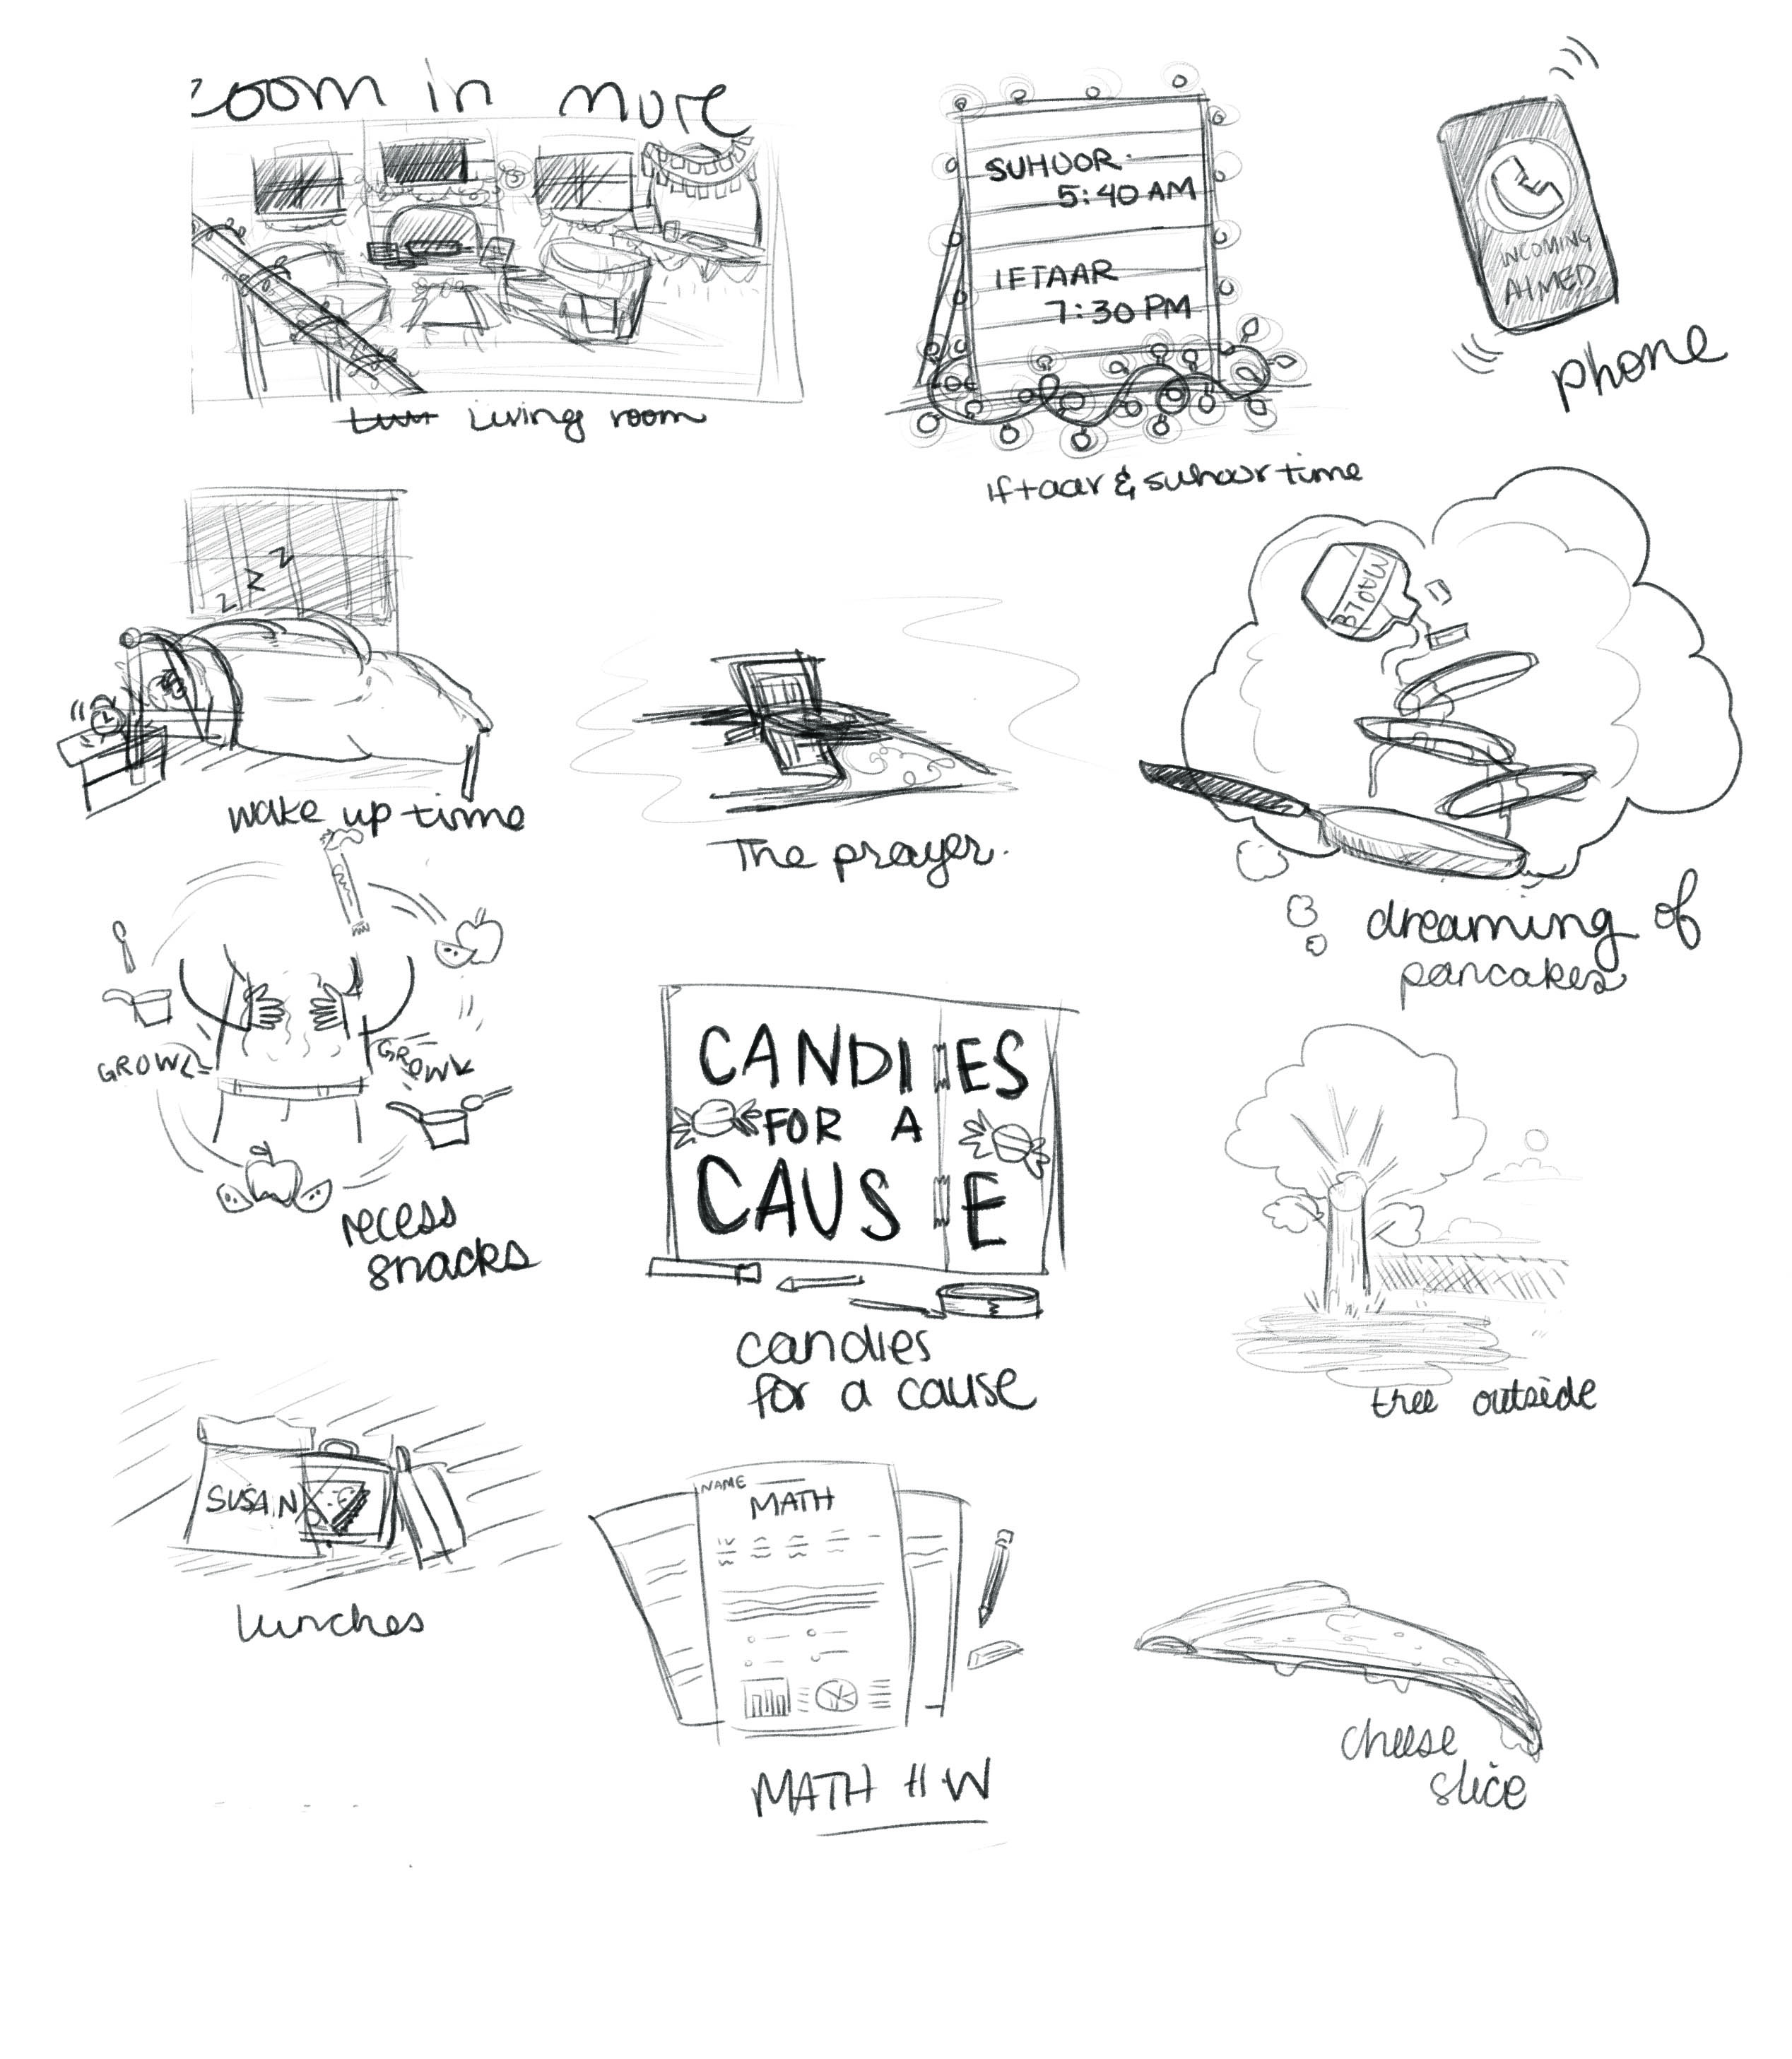 zoom in more
living room
SUHOOR
5:40 AM
IFTAAR
7:30 PM
iftaar & suhour time
INCOMING
AHMED
phone
z z z
wake up time
The prayer.
dreaming of
pancakes
GROWL
recess
snacks
CANDIES
FOR A
CAUSE
candies
for a cause
tree outside
SUSAN
lunches
NAME
MATH
MATH HW
cheese
slice